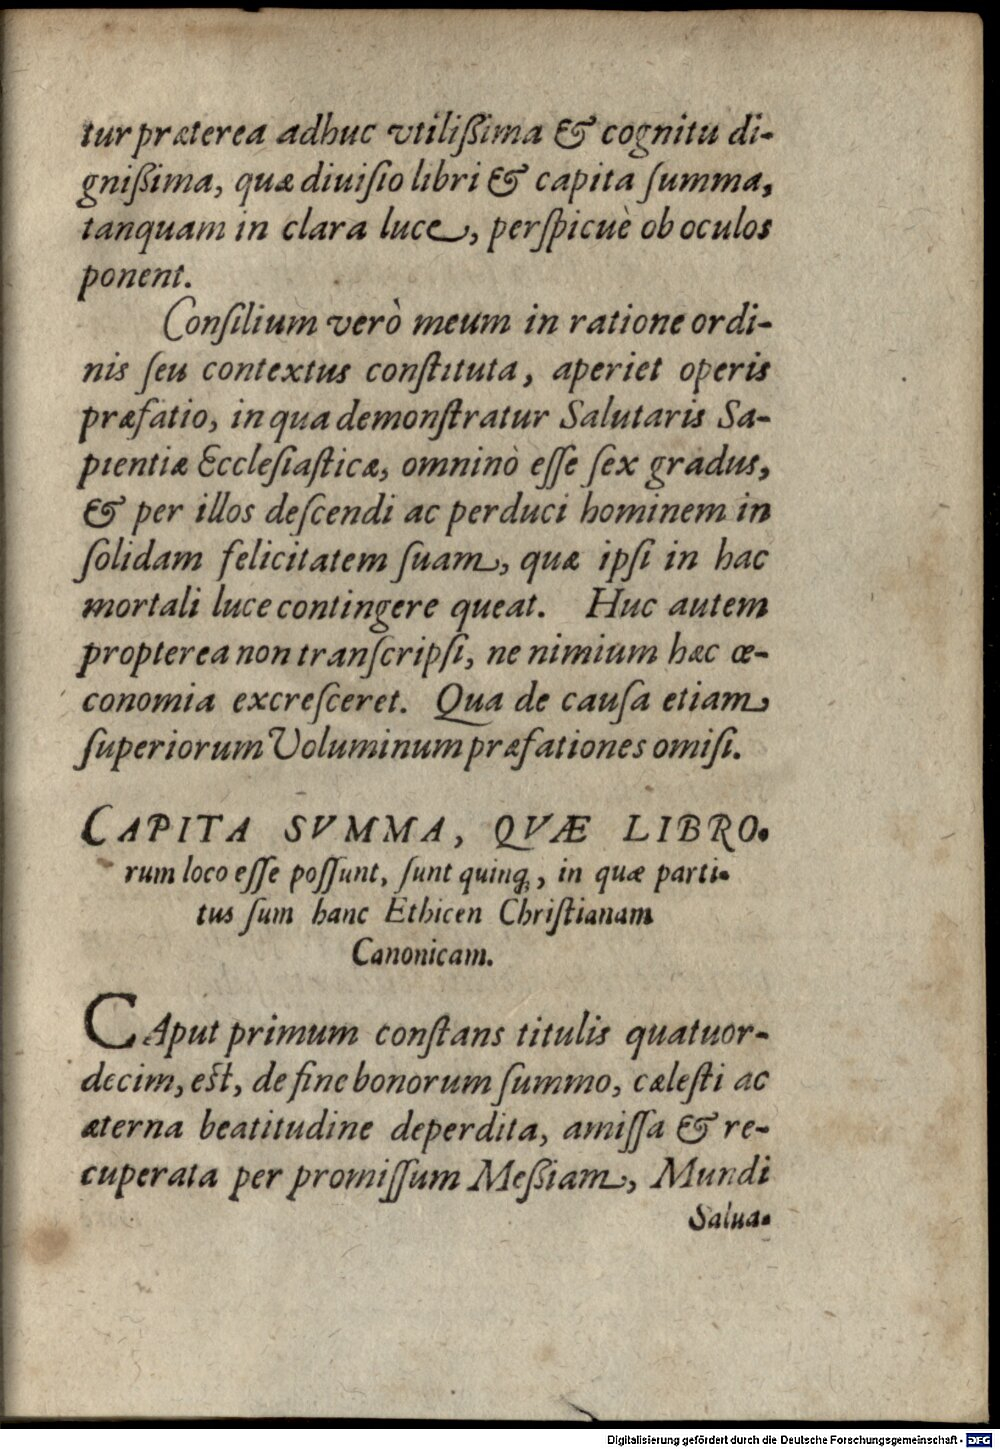 tur præterea adhuc vtilißima & cognitu di-
gnißima, quæ diuiſio libri & capita ſumma,
tanquam in clara luce, perſpicuè ob oculos
ponent.
Conſilium verò meum in ratione ordi-
nis ſeu contextus conſtituta, aperiet operis
præfatio, in qua demonſtratur Salutaris Sa-
pientiæ Eccleſiaſticæ, omninò eſſe ſex gradus,
& per illos deſcendi ac perduci hominem in
ſolidam felicitatem ſuam, quæ ipſi in hac
mortali luce contingere queat. Huc autem
propterea non tranſcripſi, ne nimium hæc œ-
conomia excreſceret. Qua de cauſa etiam
ſuperiorum Voluminum præfationes omiſi.
CAPITA SVMMA, QVÆ LIBRO-
rum loco eſſe poſſunt, ſunt quinq;, in quæ parti-
tus ſum hanc Ethicen Chriſtianam
Canonicam.
CAput primum conſtans titulis quatuor-
decim, eſt, de fine bonorum ſummo, cæleſti ac
æterna beatitudine deperdita, amiſſa & re-
cuperata per promiſſum Meßiam, Mundi
Salua-
Digitalisierung gefördert durch die Deutsche Forschungsgemeinschaft - DFG